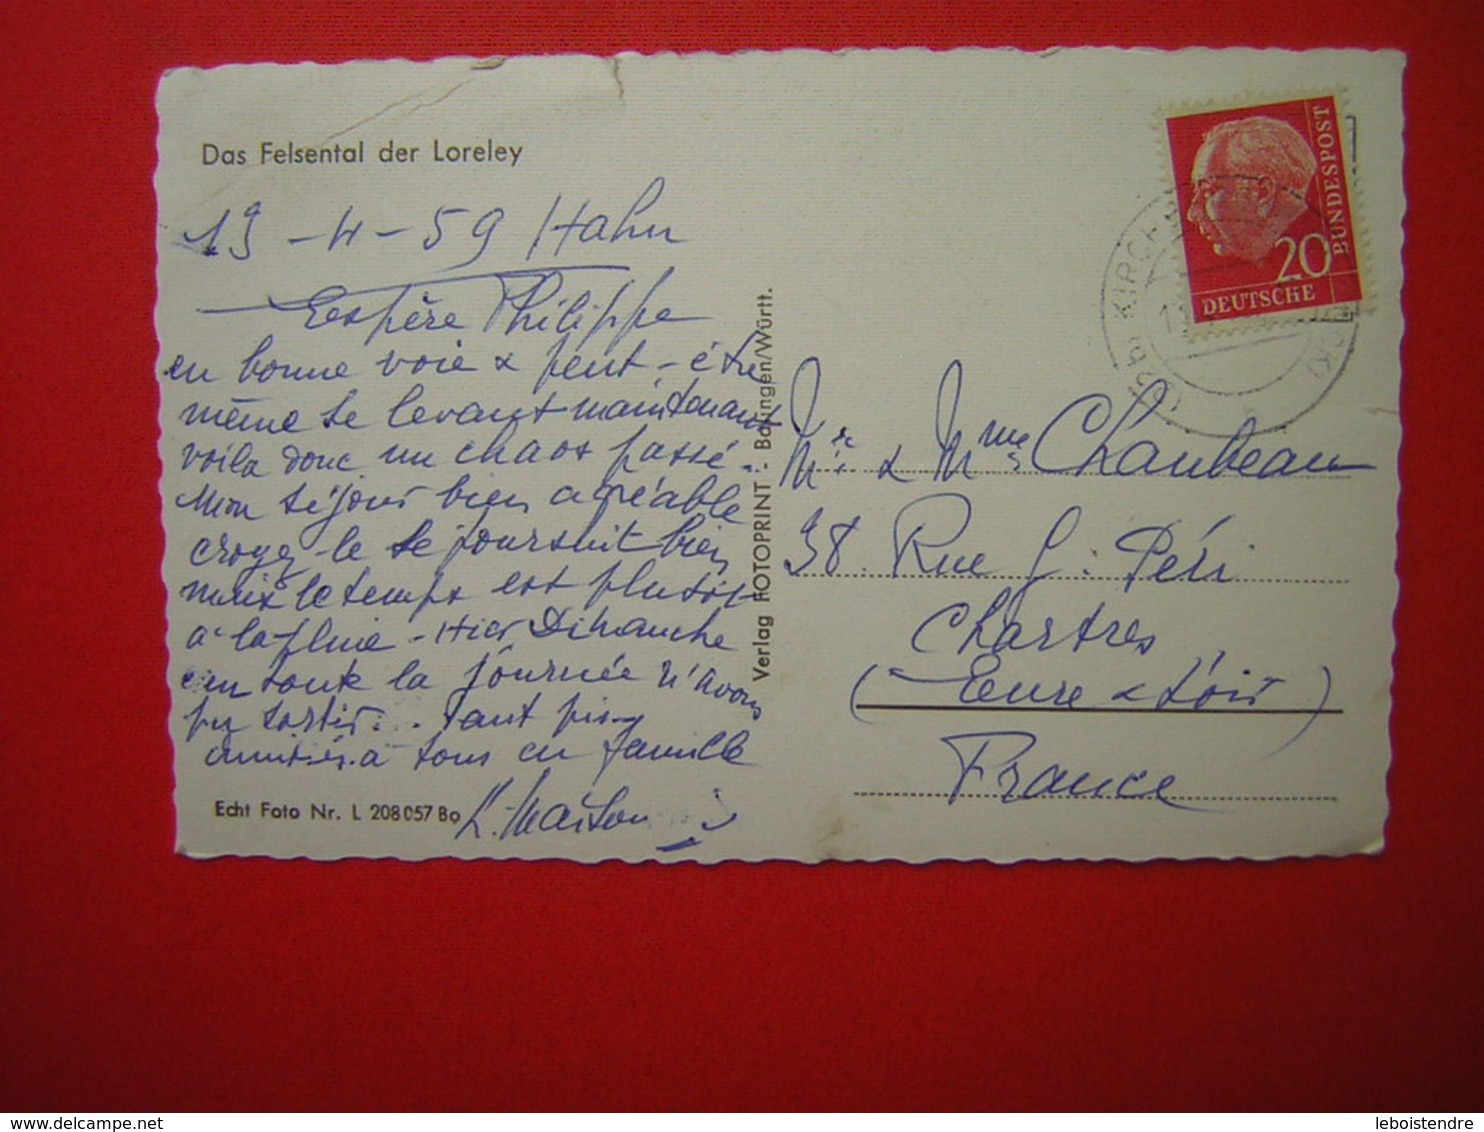 Das Felsental der Loreley
19-4-59 Hahn
Espère Philippe
en bonne voie & peut-être
même se levant maintenant
voila donc un chaos passé.
Mon séjour bien agréable
croyez-le se poursuit bien
mais le temps est plutôt
à la pluie - Hier Dimanche
en toute la journée n'avons
pu sortir... Tant pis
amitiés à tous en famille
Maison
Echt Foto Nr. L 208057 Bo
Verlag FOTOPRINT - Balingen/Württ.
DEUTSCHE
BUNDESPOST
20
KIRCH
Mr & Mme Chaubeau
38. Rue G. Péri
Chartres
(Eure & Loir)
France
delcampe.net
leboistendre